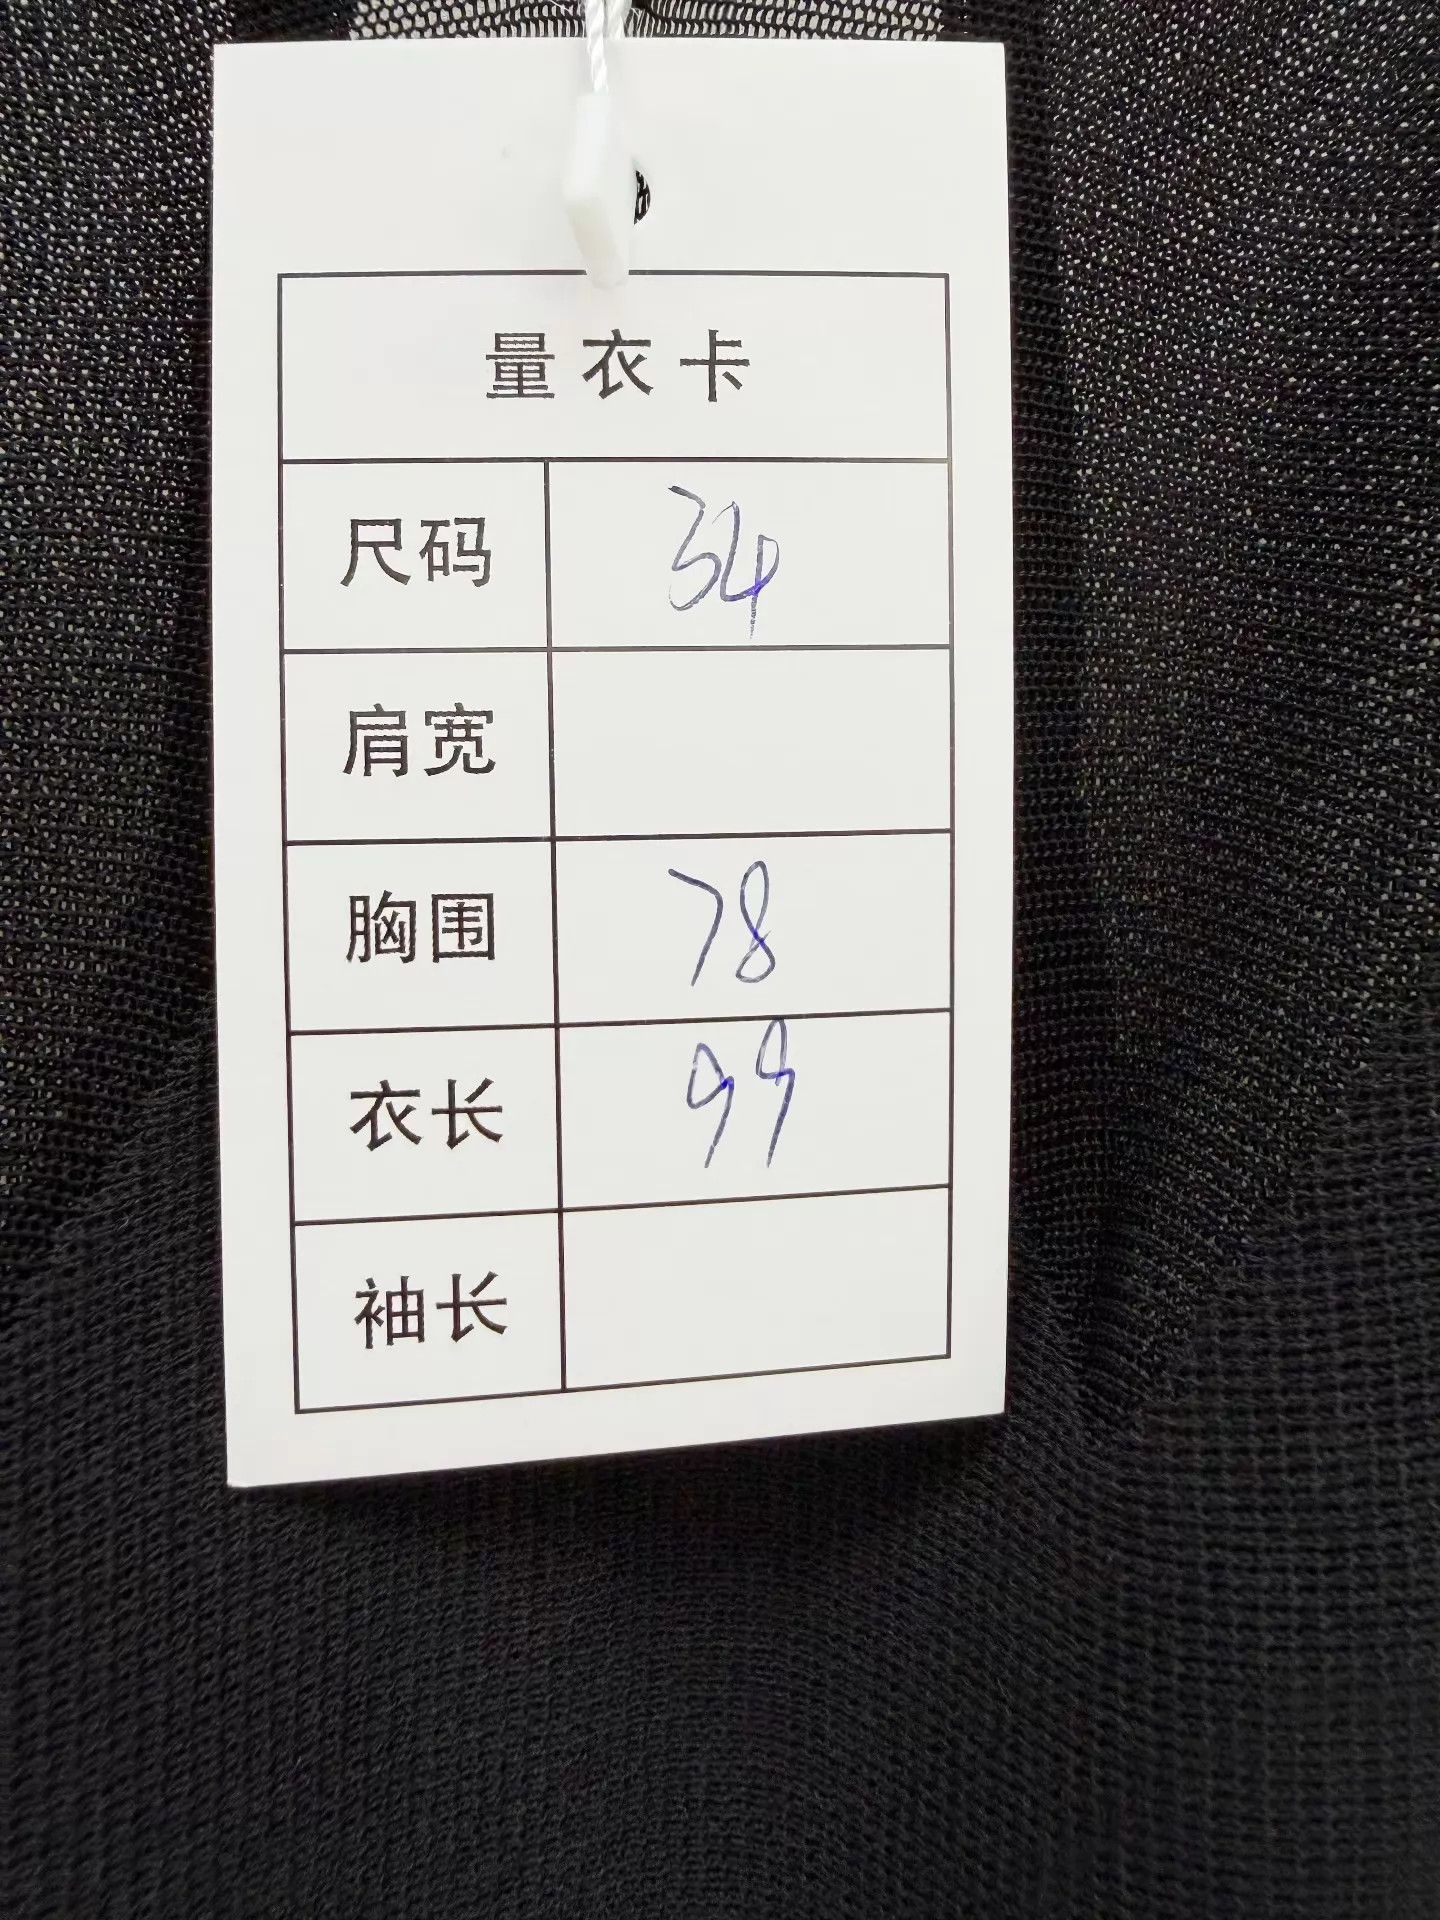 量衣卡
尺码 34
肩宽
胸围 78
衣长 99
袖长